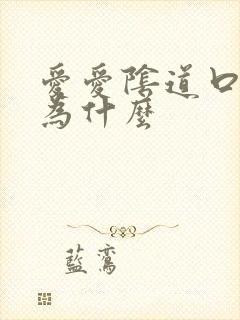 愛愛陰道口
為什麼
藍鸞